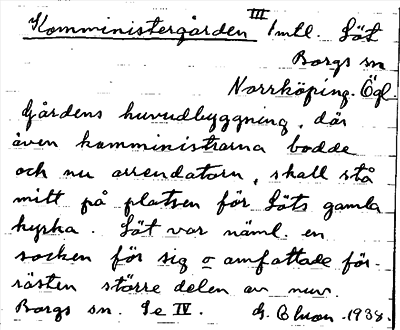 Komministergården III 1 mtl. Löt
Borgs sn
Norrköping. Ögl.
Gårdens huvudbyggning, där
även komministrarna bodde
och nu arrendatorn, skall stå
mitt på platsen för Löts gamla
kyrka. Löt var näml. en
socken för sig o omfattade för-
rästen större delen av nuv.
Borgs sn. Se IV. G. 1938.